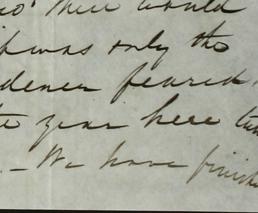 there would
was only the
feared
year here
- We have finish